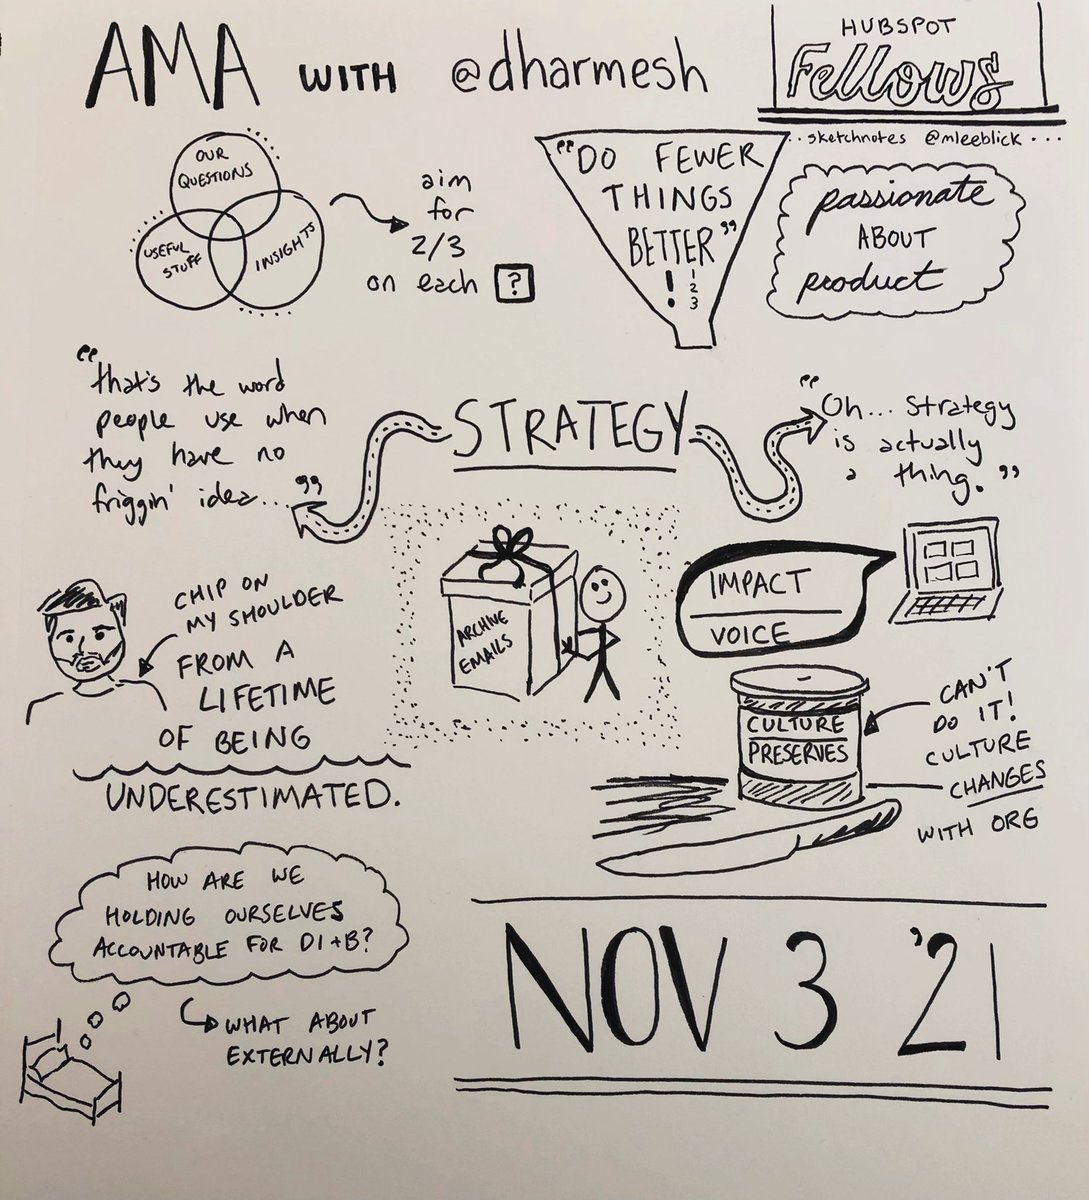 AMA WITH @dharmesh
HUBSPOT
Fellows
sketchnotes @mleeblick
OUR
QUESTIONS
USEFUL
STUFF
INSIGHTS
aim
for
2/3
on each ?
"DO FEWER
THINGS
BETTER"
!
1
2
3
passionate
ABOUT
product
STRATEGY
"that's the word
people use when
they have no
friggin' idea..."
"Oh... strategy
is actually
a thing."
CHIP ON
MY SHOULDER
FROM A
LIFETIME
OF BEING
UNDERESTIMATED.
ARCHIVE
EMAILS
IMPACT
VOICE
CULTURE
PRESERVES
CAN'T
DO IT!
CULTURE
CHANGES
WITH ORG
HOW ARE WE
HOLDING OURSELVES
ACCOUNTABLE FOR DI+B?
WHAT ABOUT
EXTERNALLY?
NOV 3 '21